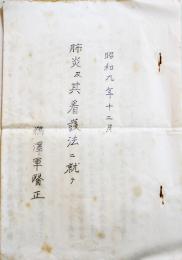 昭和九年十二月
肺炎及其看護法ニ就テ
澤軍醫正